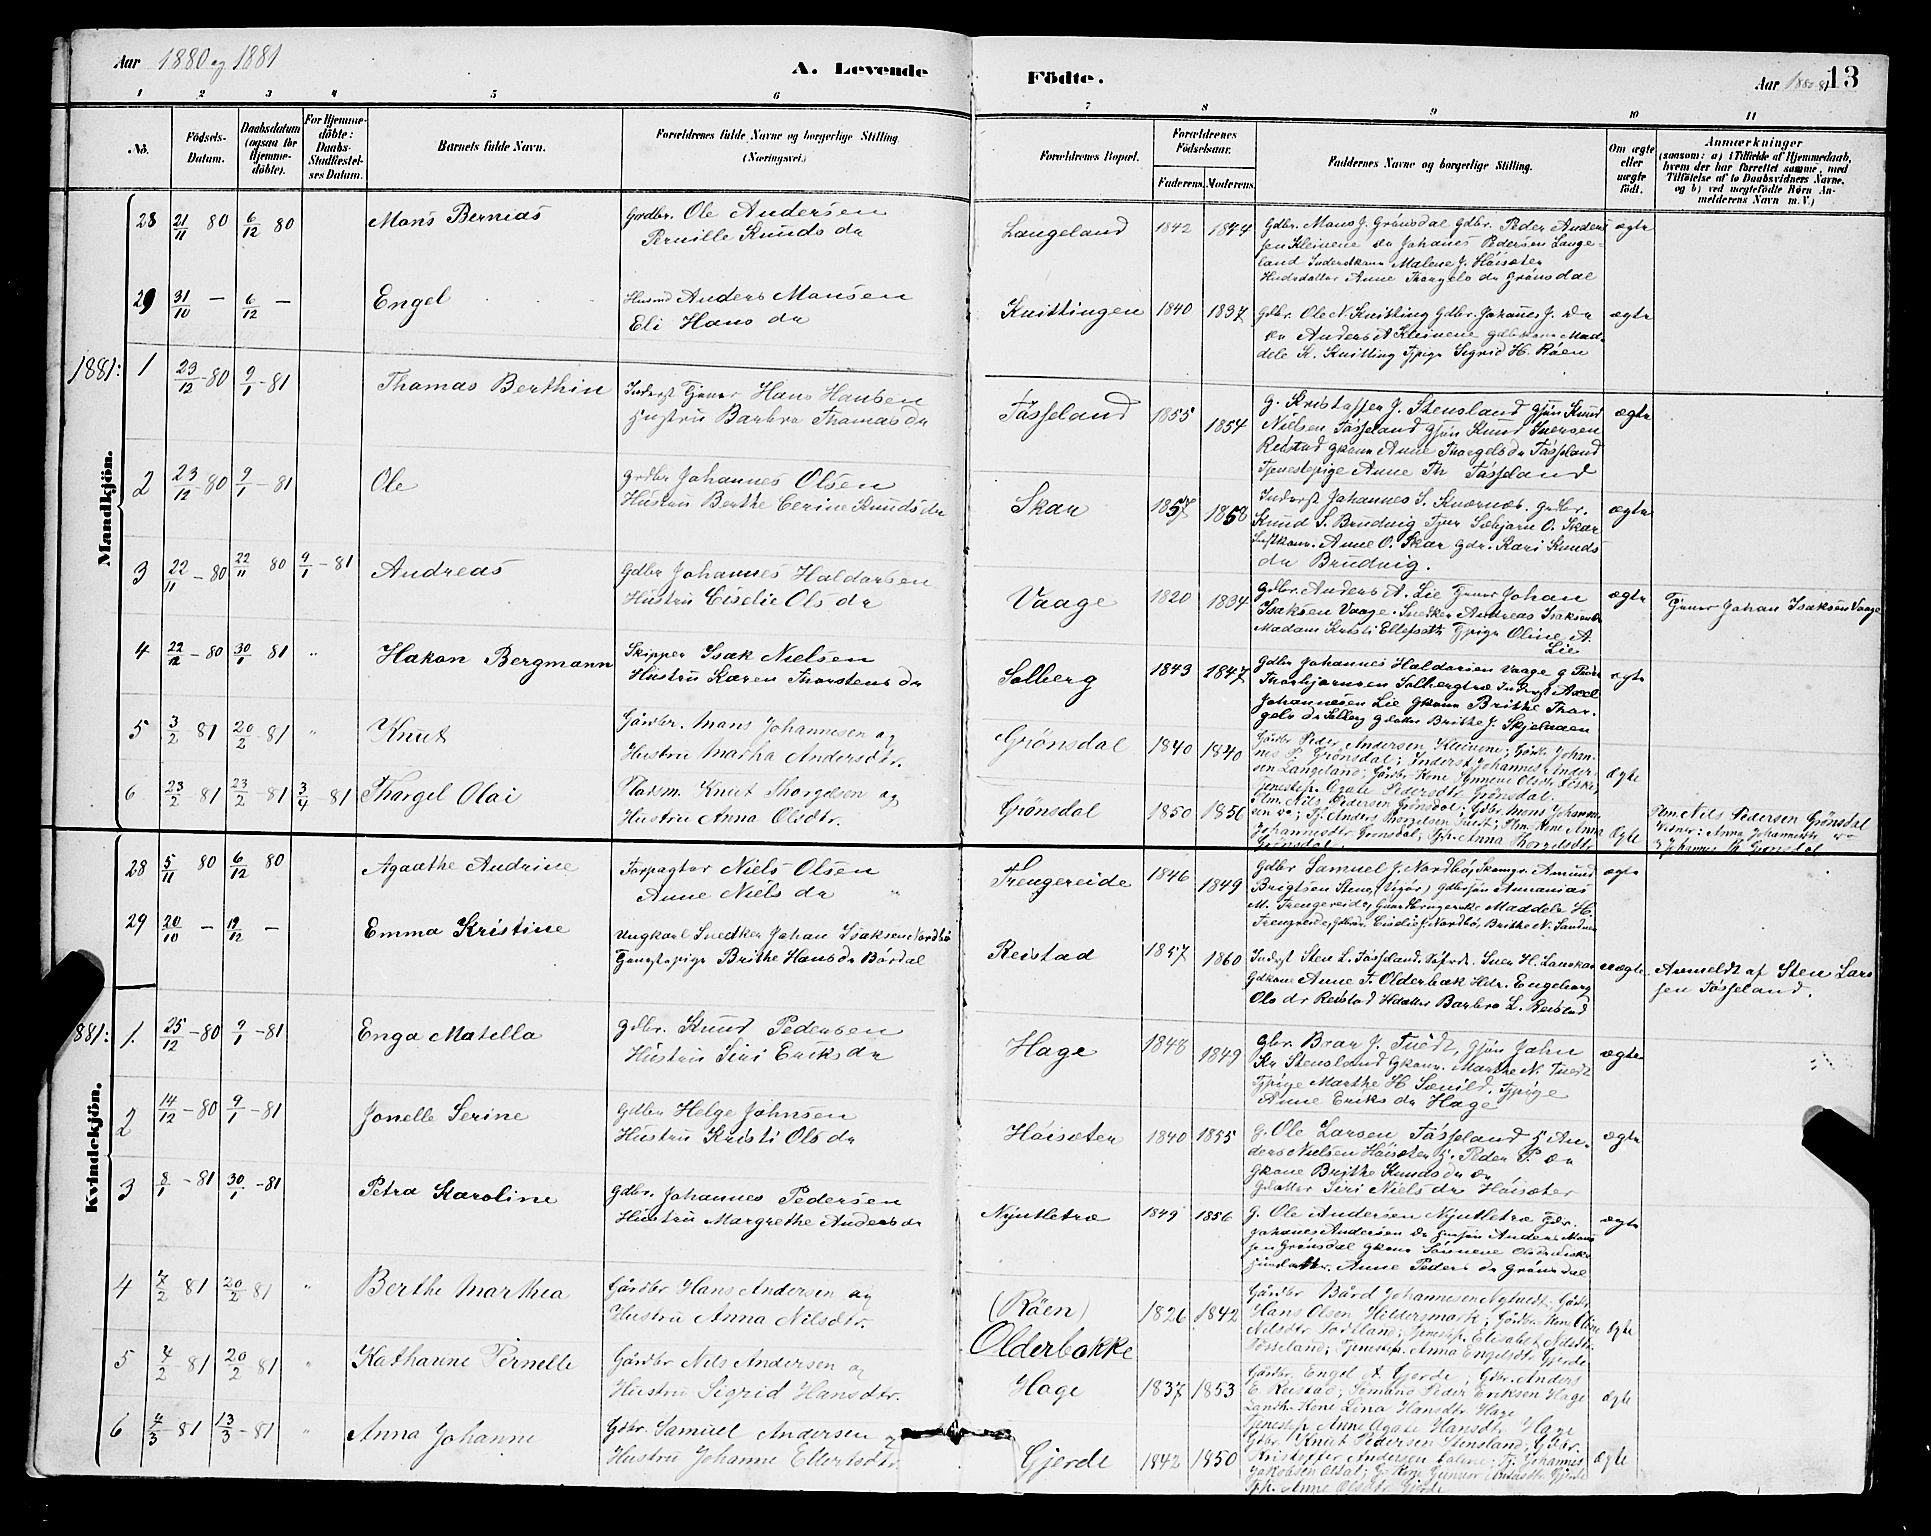 Aar 1880 og 1881
A. Levende Födte.
Aar 1880 81
13
1 2 3 4 5 6 7 8 9 10 11
No.
Födsels-Datum.
Daabsdatum (ogsaa for Hjemmedöbte).
For Hjemmedöbte: Daabs-Stadfæstelses Datum.
Barnets fulde Navn.
Forældrenes fulde Navne og borgerlige Stilling (Næringsvei.)
Forældrenes Bopæl.
Forældrenes Födselsaar.
Faderens. Moderens.
Faddernes Navne og borgerlige Stilling.
Om ægte eller uægte födt.
Anmærkninger
(saasom: a) i Tilfælde af Hjemmedaab, hvem der har forrettet samme, med Tilföielse af to Daabsvidners Navne, og b) ved uægtefödte Börn Anmelderens Navn m. V.)
Mandkjön.
28 21/11 80 6/12 80 Mons Bernias
Grdbr. Ole Andersen
Pernille Knuds dr
Langeland 1842 1844
Gdbr. Mons J. Grönsdal Gdbr. Peder Anders
sen Kleivene Johanes Pedersen Lange-
land Inderstkone Malene J. Höisæter
Anne Thorgels dr Grönsdal
ægte
29 31/10 — 6/12 — Engel
Husmd Anders Monsen
Eli Hans dr
Knittingen 1840 1837
Gdbr. Ole N. Knitting Gdbr. Johanes J. Do
Anders A Kleivene Gdbrkone Mad-
dele K. Knitting Tjpige Sigrid H. Röen
ægte
1881:
1 23/12 - 80 9/1 - 81 Thamas Berthin
Inderst Tjener Hans Hansen
Hustru Barbro Thamas dr
Tösseland 1855 1854
G. Kristoffer J. Stensland Gsön Knud
Nielsen Tösseland Gsön Knud Iversen
Reistad Gkone Anne Thorgels dr Tösseland
Tjenestepige Anne Th Tösseland
ægte
2 23/12 - 80 9/1 - 81 Ole
Grdbr Johannes Olsen
Hustru Berthe Cerine Knuds dr
Skar 1857 1858
Inderst Johannes S. Knarnes. Grdbr.
Knud S. Brudvig Tjnr Sæbjorn O. Skar
Anne O. Skar Gdr. Kari Knuds
dr Brudvig.
ægte
3 22/11 - 80 22/11 80 9/1 - 81 Andreas
Gdbr Johannes Haldorsen
Hustru Ciselie Ols dr
Vaage 1820 1834
Gdbr. Anders A. Lie Tjener Johan
Isaksen Vaage. Snedker Andreas Isaksen
Madam Kristi Ellefsdtr Tjpige Oline A.
Lie
ægte
Tjener Johan Isaksen Vaage
4 22/12 - 80 30/1 81 " Hakon Bergmann
Skipper Isak Nielsen
Hustru Karen Thorstens dr
Solberg 1843 1847
Gdbr Johannes Haldorsen Vaage G Peder
Thorbjørnsen Solbergtræ Inderst Axel
Johannesen Lie Gkone Brithe Thor-
gels dr Solberg Gdatter Brithe J. Skjelnæn
ægte
5 3/2 81 20/2 - 81 " Knut
Gårdbr. Mons Johannesen og
Hustru Martha Andersdtr.
Grönsdal 1840 1840
Gårdbr Peder Andersen Kleivene; Gårdbr Johan-
nes P. Grönsdal; Inderst Johannes Ander-
sen Langeland; Gårdbr Kone Anneve Olsdtr Fiske;
Tjenestep. Agate Pedersdtr Grönsdal.
Ægte
6 23/2 81 23/2 - 81 3/4 81 Thorgel Olai
Pladsm. Knut Thorgelsen og
Hustru Anna Olsdtr.
Grönsdal 1850 1856
Plm. Nils Pedersen Grönsdal; Gdbr. Mons Johanne-
sen do; Tj. Anders Thorgelsen Tuest; Plm. Kone Anna
Johannesdtr Grönsdal; Tjp. Anna Thorgelsdtr
Grönsdal
Ægte
Plm. Nils Pedersen Grönsdal
Vidner: Anna Johannesdtr do
og Johannes Th. Grönsdal
Kvindekjön.
28 5/11 80 6/12 80 Agaathe Andrine
Forpagter Niels Olsen
Anne Niels dr "
Trengereide 1846 1849
Gdbr Samuel J. Nordbö, Skomgr. Amund
Brigtsen Stene (Vigör) Gdbrsön Annanias
M. Trengereide, Maddele H.
Trengereide, Ciselie J. Nordbö, Brithe N. Sandven
ægte
29 20/10 — 19/12 — Emma Kristine
Ungkarl Snedker Johan Isaksen Nordbö
Tjenestepige Brithe Hans dr Bördal
Reistad 1857 1860
Inderst Sten L. Tösseland. Iver H. Lanskar
Gdkone Anne T. Olderbæk Hdr. Engeborg
Ols dr Reistad Hdatter Barbro L. Reistad
uægte
Anmeldt af Sten Lars
sen Tösseland.
1881:
1. 25/12 - 80 9/1 - 81 Enga Matella
Gdbr. Knud Pedersen
Hustru Siri Eriks dr
Hage 1848 1849
Gbr. Brar J. Tuedt, Gsön John
Kn Stensland Gkone. Marthe N. Tuedt
Tjpige Marthe H Sævild. Tjpige
Anne Eriks dr Hage
ægte
2 14/12 - 80 9/1 - 81 Jonelle Serine
Gdbr Helge Johnsen
Hustru Kristi Ols dr
Höisæter 1840 1855
G. Ole Larsen Tösseland G An-
ders Nielsen Höisæter G. Peder P. do
Gkone Brithe Knuds dr do
Gdatter Siri Niels dr Höisæter
ægte
3 8/1 - 81 30/1 - 81 Petra Karoline
Gdbr. Johannes Pedersen
Hustru Margrethe Anders dr
Nyutletræ 1849 1856
G. Ole Andersen Nyutletræ Gdr.
Johanes Andersen do Anders Mons
sen Grönsdal Gkone
Anne Peders dr Grönsdal
ægte
4 7/2 81 20/2 81 " Berthe Marthea
Gårdbr Hans Andersen og
Hustru Anna Nilsdtr.
(Röen)
Olderbakke
1826 1842
Gårdbr Bård Johannesen Nytuedt; Gårdbr
Hans Olsen Hildersmark; Gårdbr. Kone Oline
Nilsdtr Todtland; Tjenestep. Elisabet Nilsdtr
Tösseland; Tjenestep. Anna Engelsdtr Gjerde
Ægte
5 4/2 81 20/2 - 81 " Katharine Pernelle
Gårdbr Nils Andersen og
Hustru Sigrid Hansdtr.
Hage 1837 1853
Gårdbr. Engel A. Gjerde; Gdbr. Anders
E. Reistad; Sömand Peder Eriksen Hage
Landh. Kone Lina Hansdtr Hage
Tjenestep. Anne Agate Hansdtr Hage
Ægte
6 4/3 81 13/3 - 81 " Anna Johanne
Gdbr. Samuel Andersen og
Hustru Johanne Ellertsdtr
Gjerde 1842 1850
Gdbr. Knut Pedersen Stensland; Gdbr.
Kristoffer Andersen; Tj. Johannes
Jakobsen; G. Kone Gunvor Gjerde
Tjp. Anne Olsdtr Gjerde
Ægte